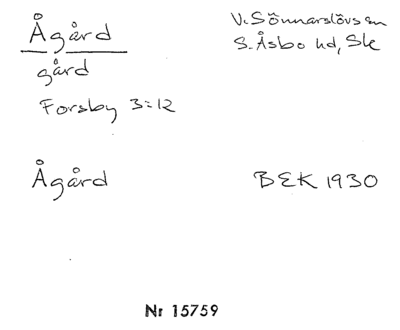 Ågård
V. Sönnarslövs sn
S. Åsbo hd, Sk
gård
Forsby 3:12
Ågård
BEK 1930
Nr 15759